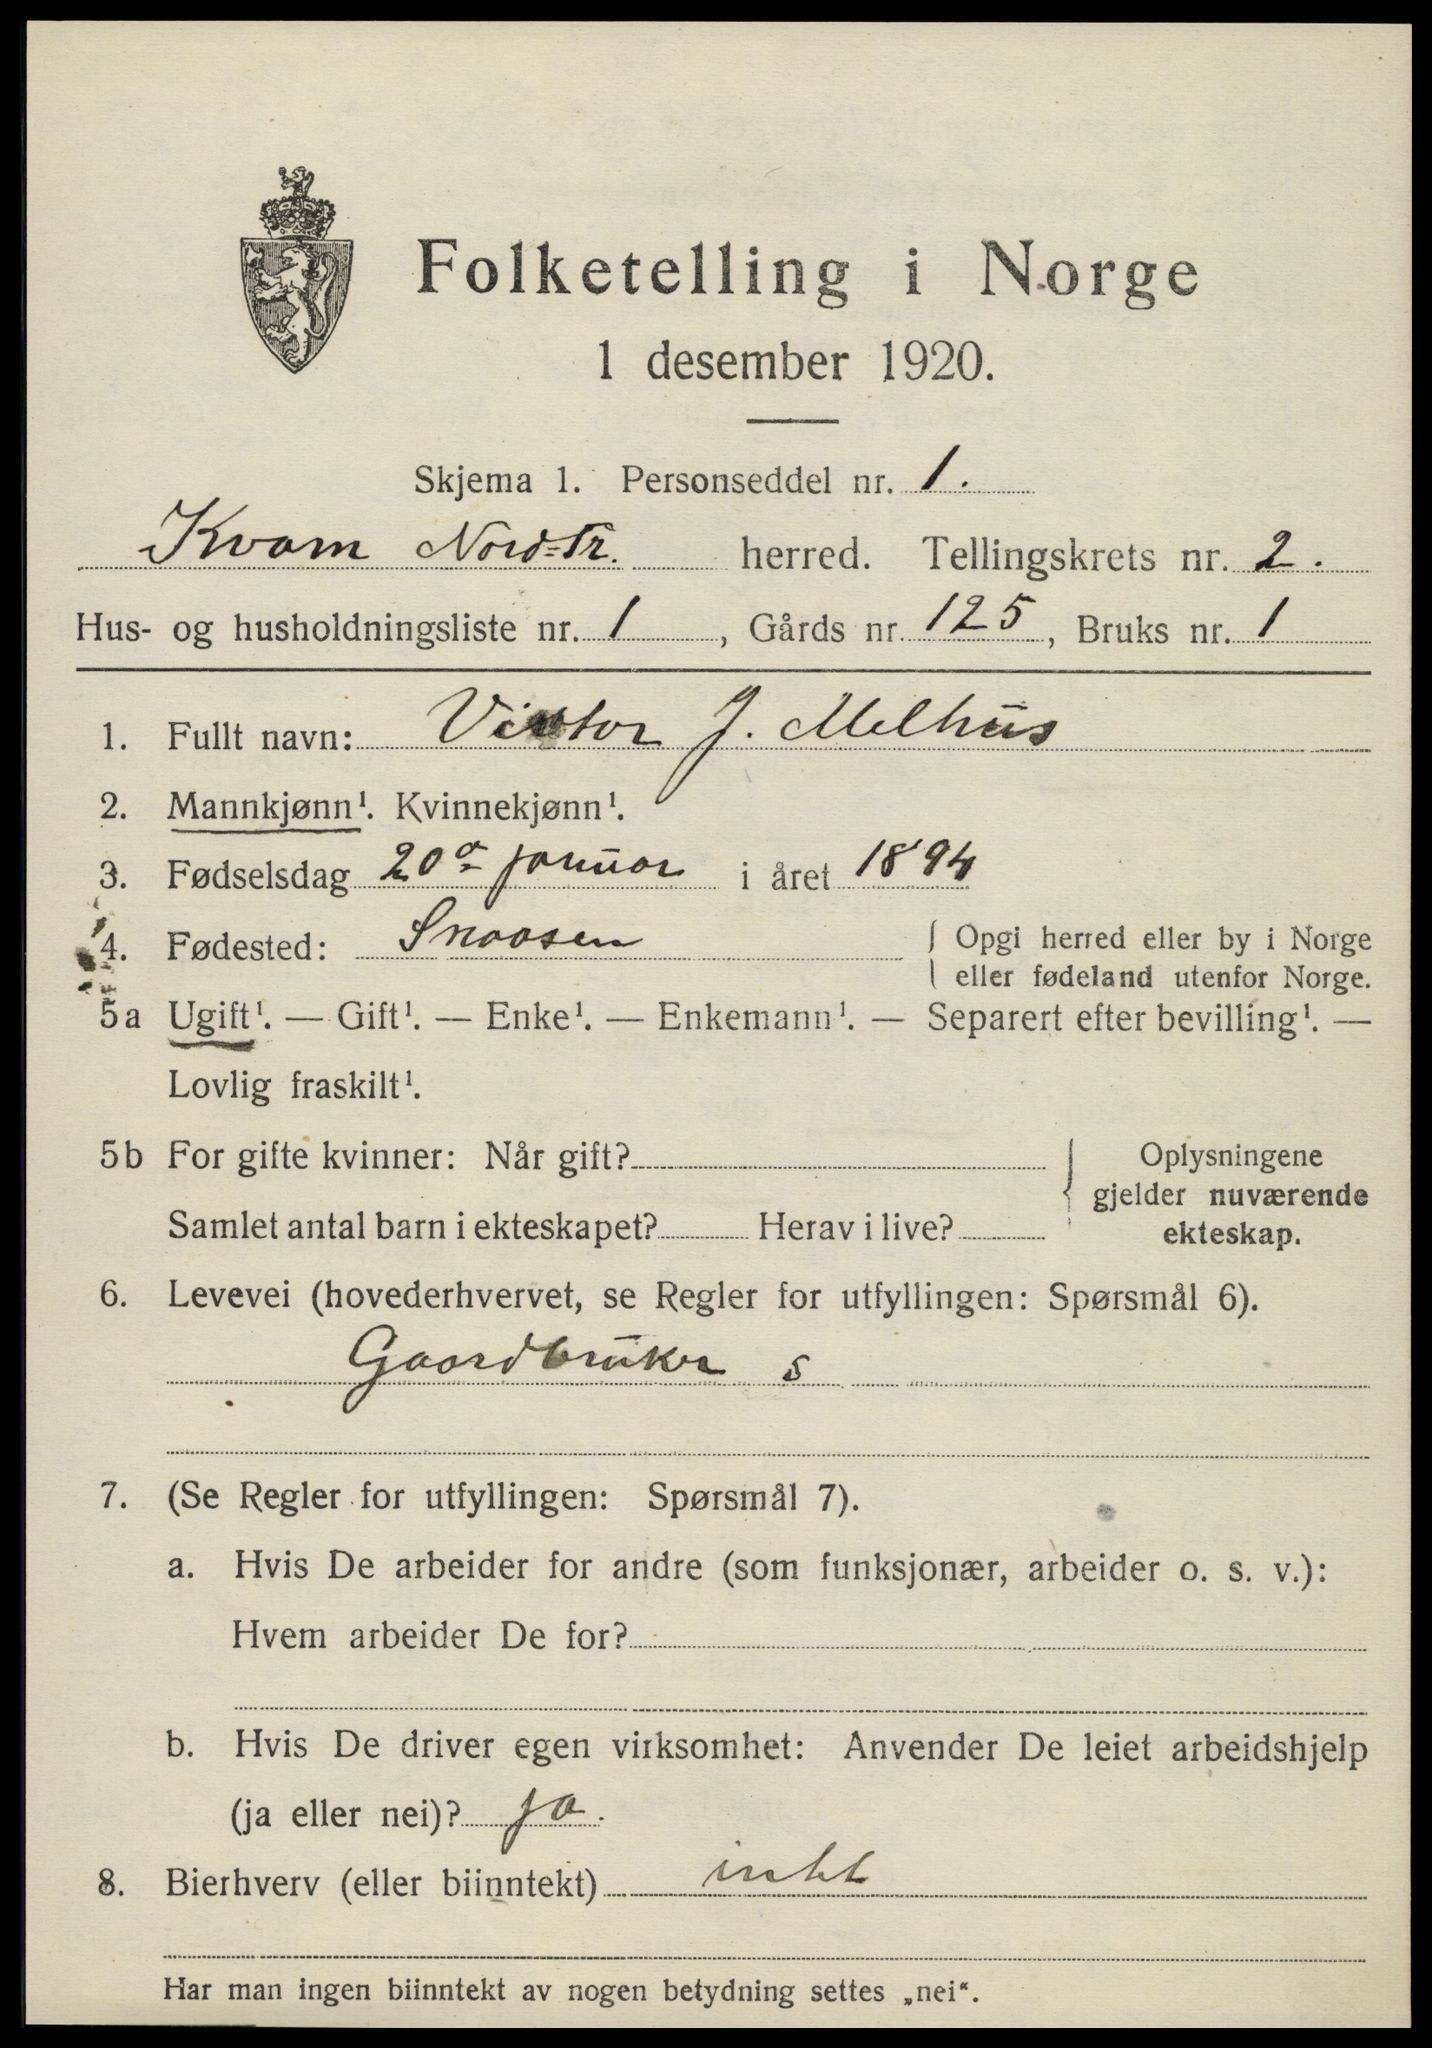 Folketelling i Norge
1 desember 1920.
Skjema 1. Personseddel nr. 1.
Kvam Nord=Tr. herred. Tellingskrets nr. 2.
Hus- og husholdningsliste nr. 1, Gårds nr. 125, Bruks nr. 1
1. Fullt navn: Viktor J. Melhus
2. Mannkjønn¹. Kvinnekjønn¹.
3. Fødselsdag 20de januar i året 1894
4. Fødested: Snaasen { Opgi herred eller by i Norge
eller fødeland utenfor Norge.
5a Ugift¹. — Gift¹. — Enke¹. — Enkemann¹. — Separert efter bevilling¹. —
Lovlig fraskilt¹.
5b For gifte kvinner: Når gift? { Oplysningene
gjelder nuværende
Samlet antal barn i ekteskapet? Herav i live? ekteskap.
6. Levevei (hovederhvervet, se Regler for utfyllingen: Spørsmål 6).
Gaardbruker s
7. (Se Regler for utfyllingen: Spørsmål 7).
a. Hvis De arbeider for andre (som funksjonær, arbeider o. s. v.):
Hvem arbeider De for?
b. Hvis De driver egen virksomhet: Anvender De leiet arbeidshjelp
(ja eller nei)? ja.
8. Bierhverv (eller biinntekt) intet
Har man ingen biinntekt av nogen betydning settes „nei“.